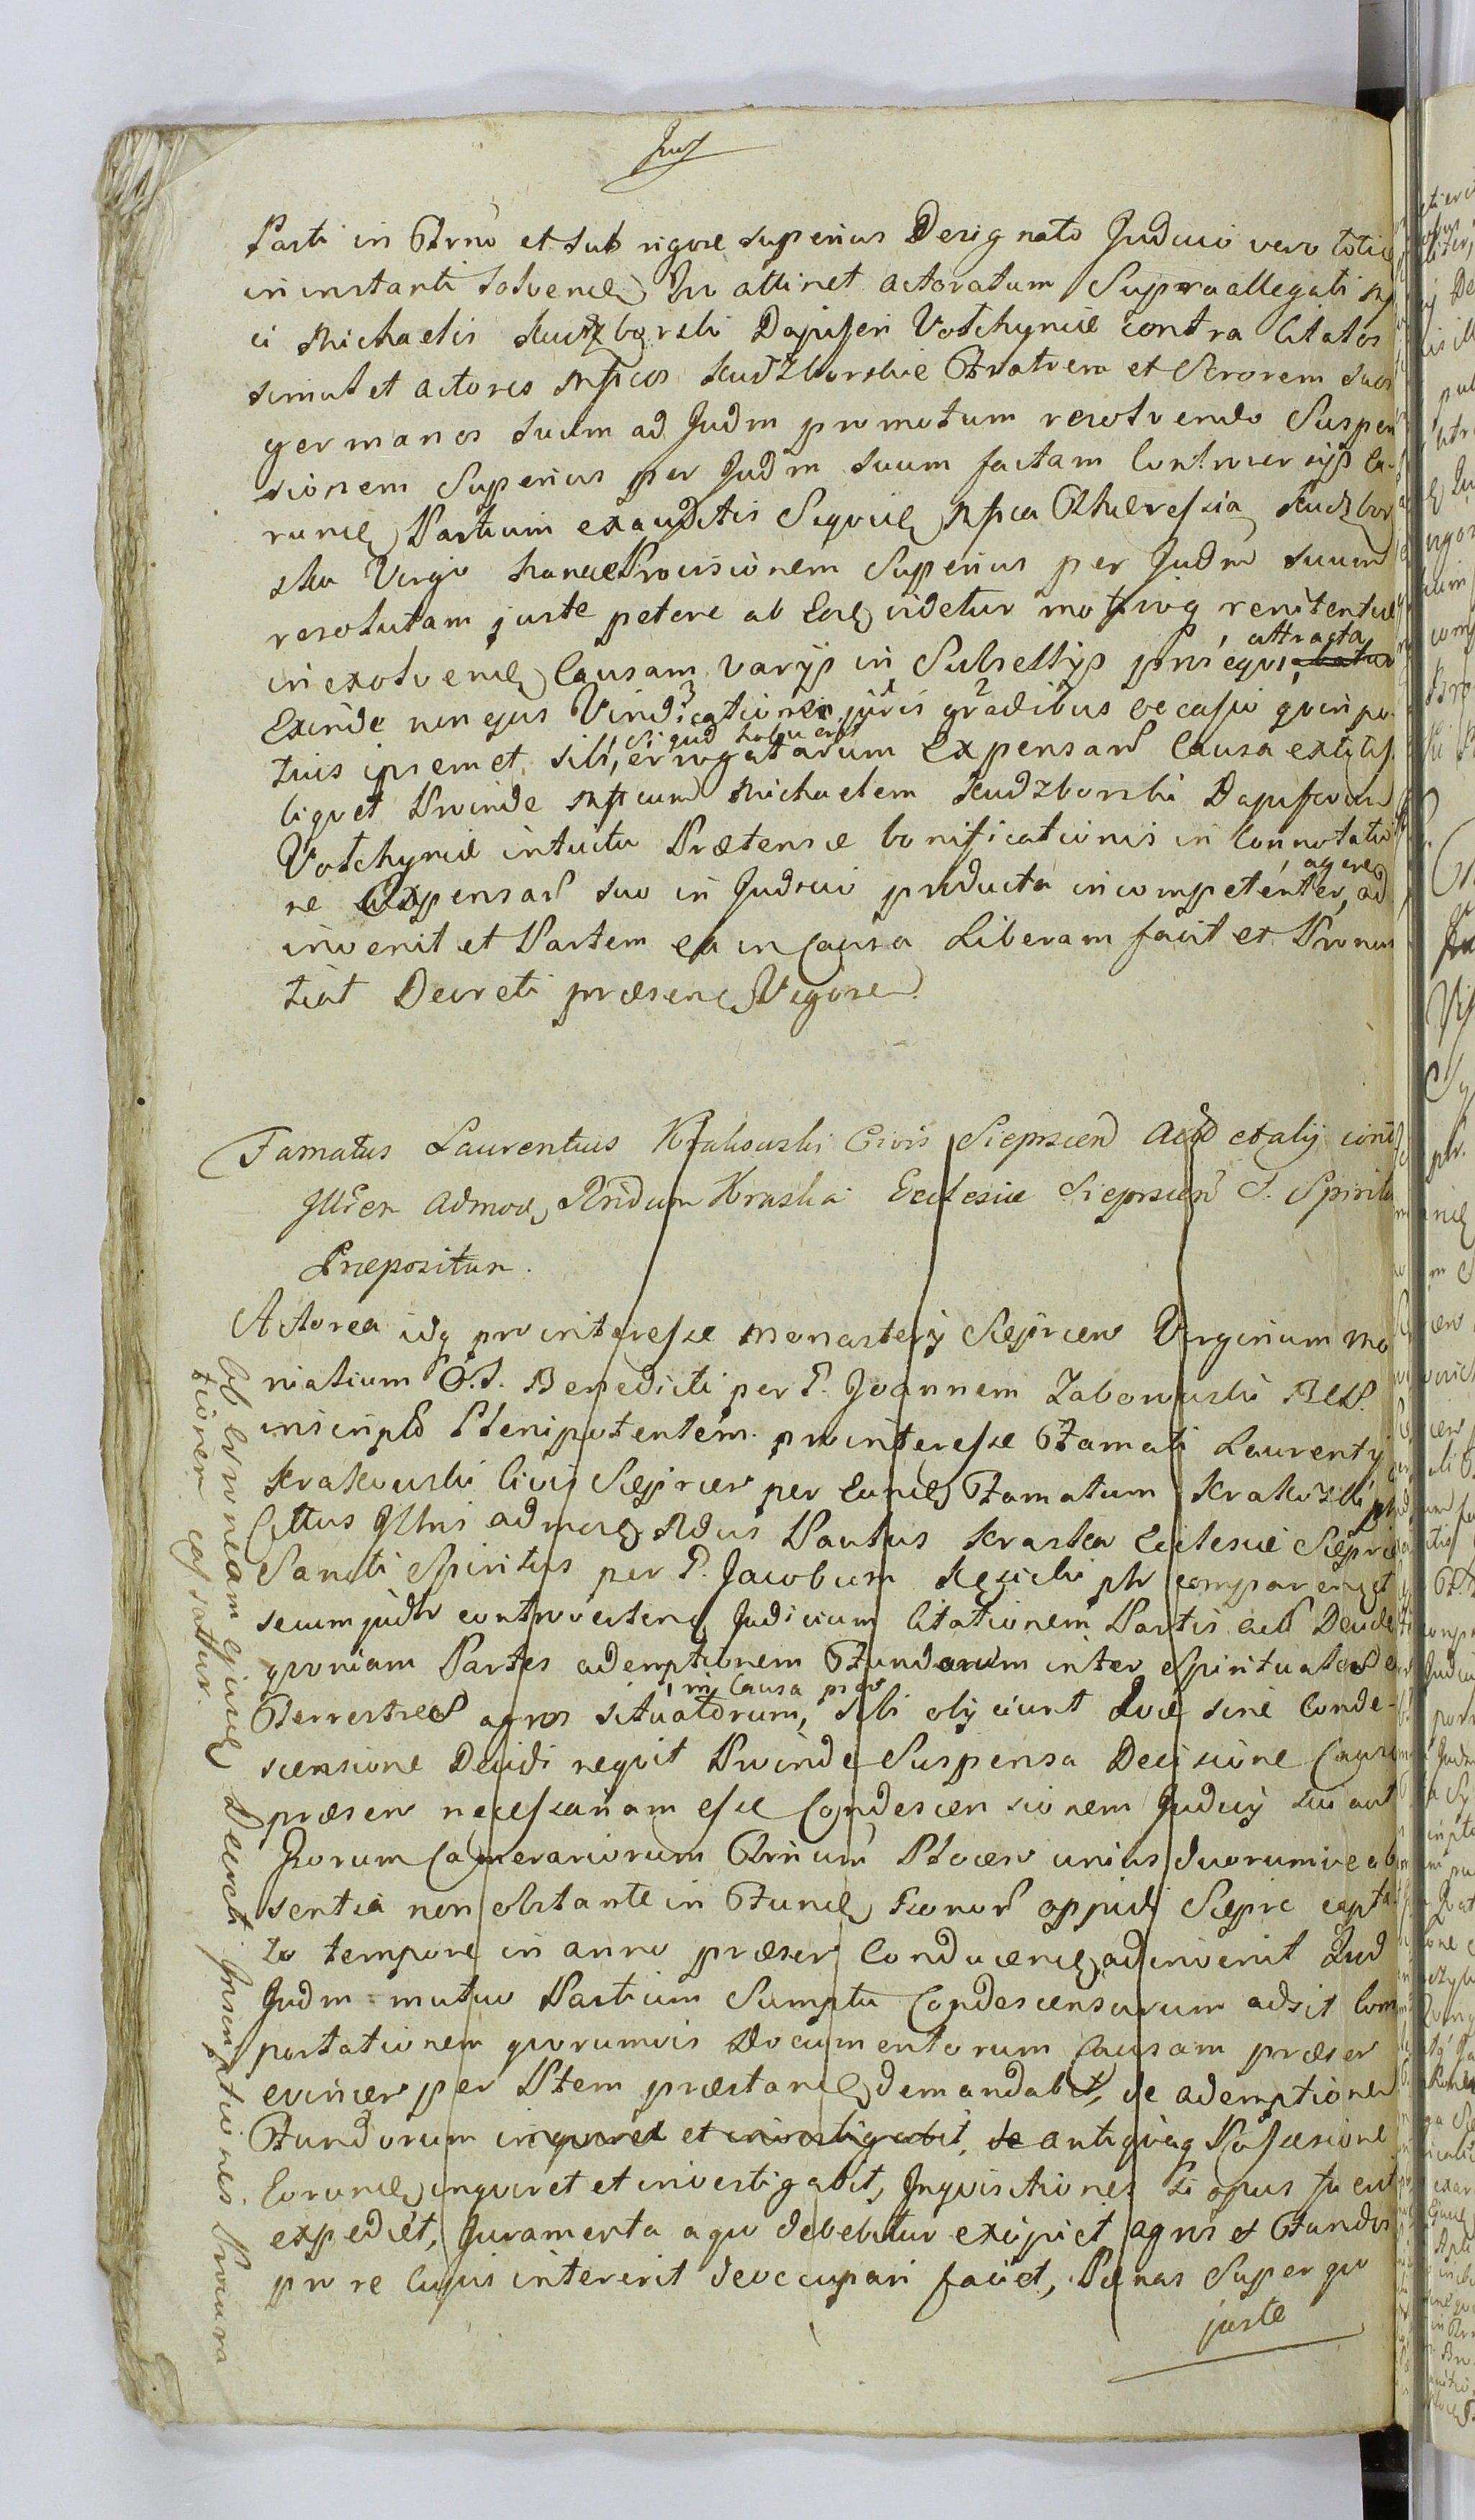 Parti in Ttrno et sub rigore superius Designato Judicio vero totid
in instanti solvend Quo attinet actoratum Supraallegati Mfi
ci Michaelis Kudzborski Dapiferi Volhyniæ contra Citatos
simul et actores Mfcos Kudzborskie Fratrem et Sororem suos
germanos suum ad Judm promotum resolvendo Suspen
sionem Superius per Judm suum factam Controversijs ea-
rund Partium exauditis Siquid Mfca Theressia Kudzbor
ska Virgo hancce Provisionem Superius per Judm suum
resolutam juste petere ab Eod videtur moxq renitentiæ
in exolvend Causam varijs in Subsellijs prosequi, attracta
Exinde non ejus Vindicationis juris gradibus occasio quin po-
tius ipsemet sibi, si quid habuerit erogatarum Expensar Causa extitiss
liquet Proinde Mfcum Michaelem Kudzborski Dapiferum
Volhyniæ intuitu Prætensæ bonificationis in Connotatio
ne Expensar suo in Judicio producta incompetenter, agere ad
invenit et Partem ea in Causa Liberam facit et Pronun
tiat Decreti præsen Vigore
Famatus Laurentius Krakowski Civis Sieprscen Actor et alij cont
Illrem Admod Rndum Kraska Ecclesiæ Sieprscen S. Spiritu
Præpositum.
Actorea idq pro interesse Monasterij Sieprcen Virginum Mo
nialium O.S. Benedicti per G. Joannem Zaborowski
inscript Plenipotentem pro interesse Famati Laurentij
Krakowski Civis Sieprcen per Eund Famatum Krakowski
Cittus Illris admod Rdus Paulus Kraska Ecclesiæ Sieprce
Sancti Spiritus per G. Jacobum plr comparen et
secum judlr controverten Judicium Citationem Partis
quoniam Partes ademptionem Fundorum inter Spirituales et
Terrestres agros situatorum, in Causa præs sibi objiciunt Quæ sine Conde-
scensione Decidi nequit Proinde Suspensa Decisione Causæ
præsen necessariam esse Condescensionem Judicij sui aut
Quorum Camerariorum Ttrium Plocen unius duorumve ab
sentia non obstante in Fund bonor oppidi Sieprc capta
to tempore in anno præsen Conducend adinvenit Quod
Judm mutuo Partium Sumptu Condescensurum adsit Com
portationem quorumvis Documentorum Causam præsen
evincen per Ptem præstand demandabit, de ademptione
Fundorum inquiret et investigabit, de antiquaq Possessione
Eorund inquiret et investigabit, Inquisitiones si opus fuerit
expediet, Juramenta a quo debebitur excipiet agros et Fundos
pro re Cujus intererit deoccupari faciet, Pænas Super quo
juste
ob erroneam ejusd Decreti Inscriptiones Procura
tionem cassatur.